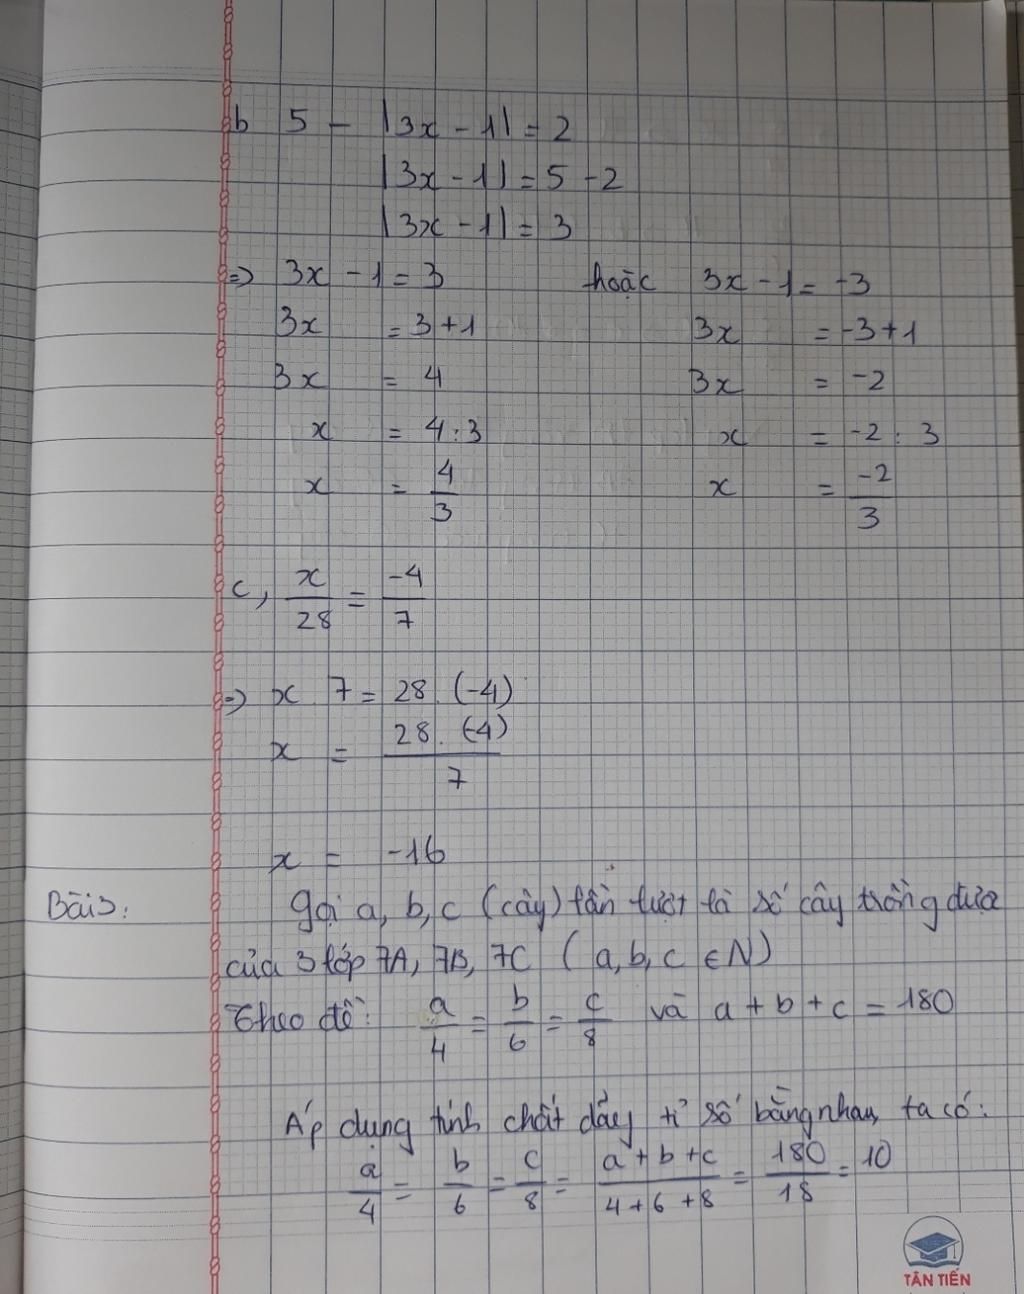 b 5 - |3x - 1| = 2
|3x - 1| = 5 - 2
|3x - 1| = 3
=> 3x - 1 = 3 hoặc 3x - 1 = -3
3x = 3 + 1 3x = -3 + 1
3x = 4 3x = -2
x = 4 : 3 x = -2 : 3
x = 4/3 x = -2/3
c, x/28 = -4/7
=> x 7 = 28 . (-4)
x = 28 . (-4)/7
x = -16
Bài 3: Gọi a, b, c (cây) lần lượt là số cây trồng được
của 3 lớp 7A, 7B, 7C (a, b, c ∈ N)
Theo đề: a/4 = b/6 = c/8 và a + b + c = 180
Áp dụng tính chất dãy tỉ số bằng nhau, ta có:
a/4 = b/6 = c/8 = a + b + c/4 + 6 + 8 = 180/18 = 10
TÂN TIẾN